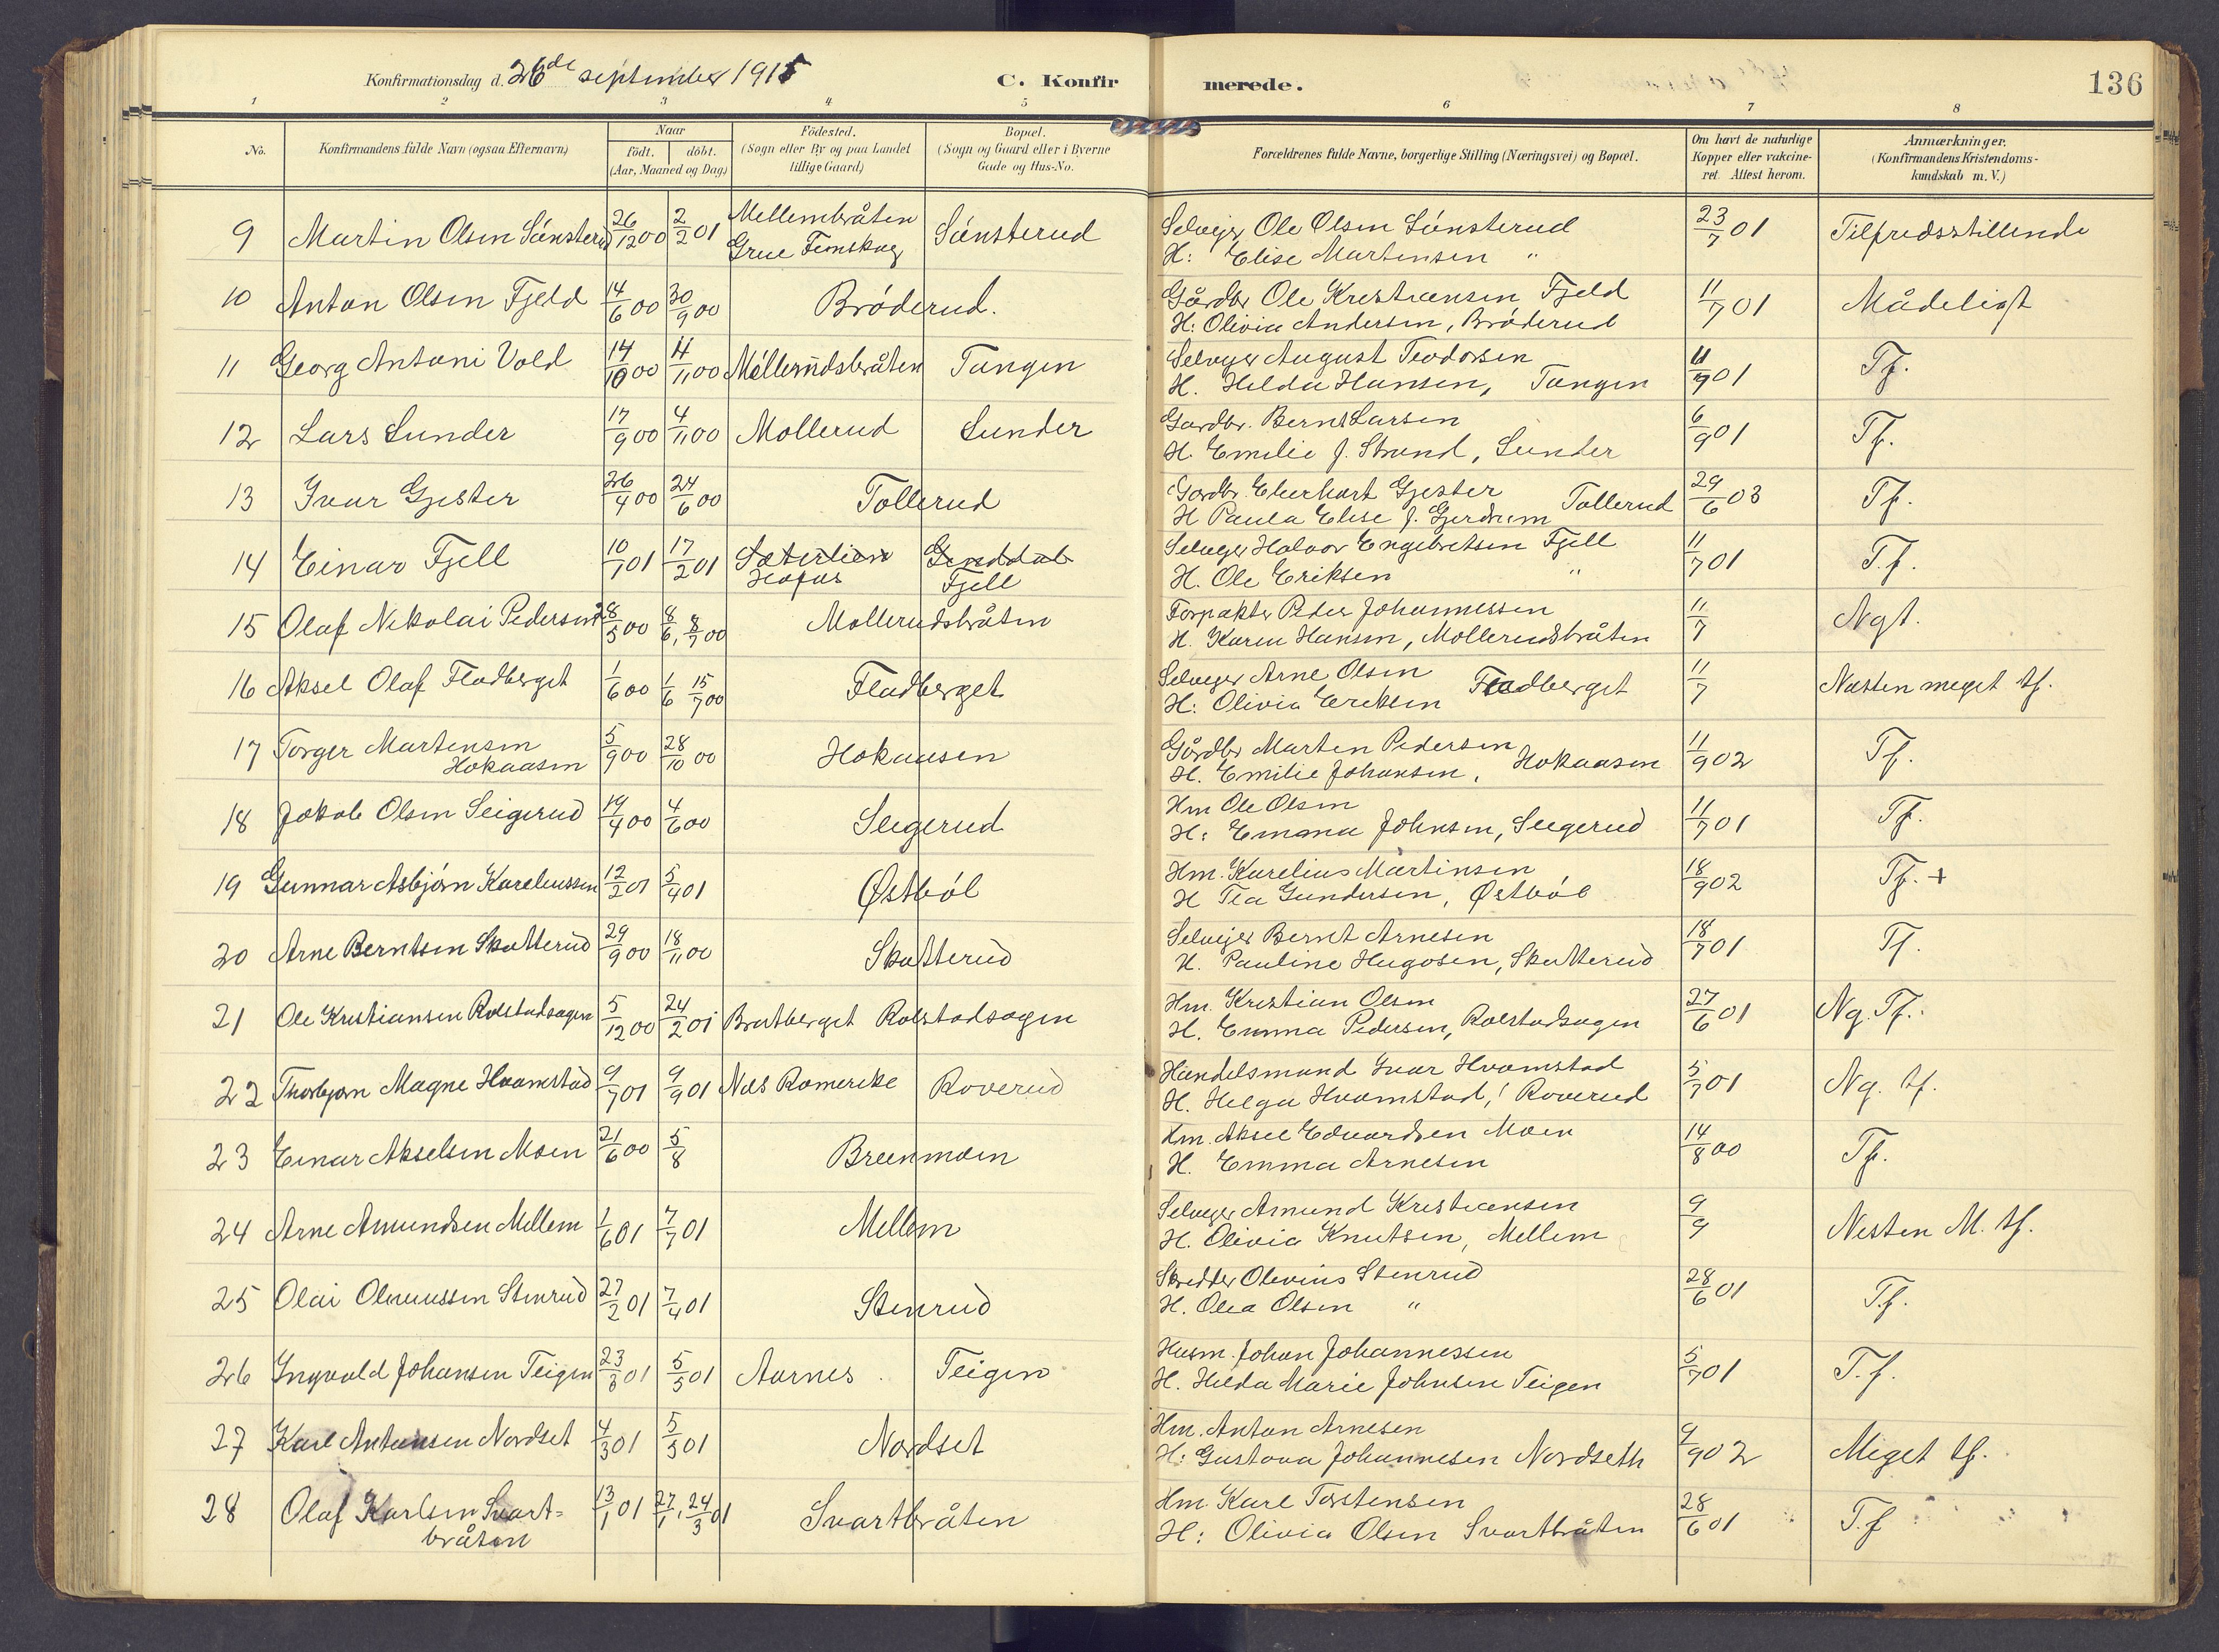 Konfirmationsdag d. 26de september 1915
C. Konfirmerede.
136
1 2 3 4 5 6 7 8
No.
Konfirmandens fulde Navn (ogsaa Efternavn)
Naar
födt. döbt.
(Aar, Maaned og Dag)
Födested.
(Sogn eller By og paa Landet
tillige Gaard)
Bopæl.
(Sogn og Gaard eller i Byerne
Gade og Hus-No.
Forældrenes fulde Navne, borgerlige Stilling (Næringsvei) og Bopæl.
Om havt de naturlige
Kopper eller vakcine-
ret. Attest herom.
Anmærkninger.
(Konfirmandens Kristendoms-
kundskab m. V.)
9 Martin Olsen Sónsterud 26/12 00 2/2 01 Mellembråten Sónsterud Selvejer Ole Olsen Sónsterud 23/7 01 Tilfredsstillende
Grue Finskog H: Elise Martensen "
10 Anton Olsen Fjeld 14/6 00 30/9 00 Bróderud. Gårdbr Ole Kristiansen Fjeld 11/7 01 Mådeligt
H: Olivia Andersen, Bróderud
11 Georg Antoni Vold 14/10 00 11/11 00 Móllerudsbråten Tangen Selveyer August Teodorsen 11/9 01 Tf.
H. Hilda Hansen, Tangen
12 Lars Lunder 17/9 00 4/11 00 Mollerud Lunder Gardbr. Bernt Larsen 6/9 01 Tf.
H. Emilie f. Strand, Lunder
13 Ivar Gjester 26/4 00 24/6 00 Tollerud Gardbr. Eberhart Gjester 29/6 03 Tf.
H Paula Elise f. Gjerdrum Tollerud
14 Einar Fjell 10/1 01 17/2 01 Sæterlien Selveger Halvor Engebretsen Fjell 11/7 01 T.f.
Hofos Fjell H. Ole Eriksen "
15 Olaf Nikolai Pedersen 28/5 00 8/6, 8/7 00 Mollerudsbråten Forpakter Peder Johannessen 11/7 Ngt.
H. Karen Hansen, Mollerudsbråten
16 Aksel Olaf Fladberget 1/6 00 1/6 15/7 00 Fladberget Selveger Arne Olsen 11/7 Næsten meget tf.
H: Olivia Eriksen Fladberget
17 Torger Martensen 5/9 00 28/10 00 Hokaasen Gårdbr Marten Pedersen 11/9 02 Tf.
Hokaasen H. Emilie Johansen, Hokaasen
18 Jakob Olsen Seigerud 19/4 00 4/6 00 Seigerud Hm Ole Olsen 11/7 01 Tf.
H: Emma Johnsen, Seigerud
19 Gunnar Asbjórn Kareliussen 12/2 01 5/4 01 Østból Hm. Karelius Martinsen 18/9 02 Tf. +
H Tea Gundersen, Østból
20 Arne Berntsen Skatterud 29/9 00 18/11 00 Skatterud Selvejer Bernt Arnesen 18/7 01 Tf.
H. Pauline Hugosen, Skatterud
21 Ole Kristiansen Rolstadsagen 5/12 00 24/2 01 Bratberget Rolstadsagen Hm. Kristian Olsen 27/6 01 Ng. Tf.
H. Emma Pedersen, Rolstadsagen
22 Thorbjorn Magne Hvamstad 9/7 01 9/9 01 Næs Romerike Roverud Handelsmand Ivar Hvamstad 5/7 01 Ng. tf.
H. Helga Hvamstad, Roverud
23 Einar Akselsen Moen 21/6 00 5/8 Breenmoen Hm. Aksel Edvardsen Moen 14/8 00 Tf.
H. Emma Arnesen
24 Arne Amundsen Mellem 1/6 01 7/7 01 Mellem Selveger Amund Kristiansen 9/9 Nesten M. tf.
H. Olivia Knutsen, Mellem
25 Olai Olaviussen Stenrud 27/2 01 7/4 01 Stenrud Skredder Olavius Stenrud 28/6 01 T.f.
H. Olea Olsen "
26 Ingvald Johansen Teigen 23/3 01 5/5 01 Aarnes Teigen Husm. Johan Johannessen 5/7 01 T.f.
H. Hilda Marie Johnsen Teigen
27 Karl Antonsen Nordset 4/3 01 5/5 01 Nordset Hm. Anton Arnesen 9/9 02 Meget tf.
H: Gustava Johannesen Nordseth
28 Olaf Karlsen Svart= 13/1 01 27/1, 24/3 01 Svartbråten Hm. Karl Torstensen 28/6 01 T.f
bråten H: Olivia Olsen Svartbråten